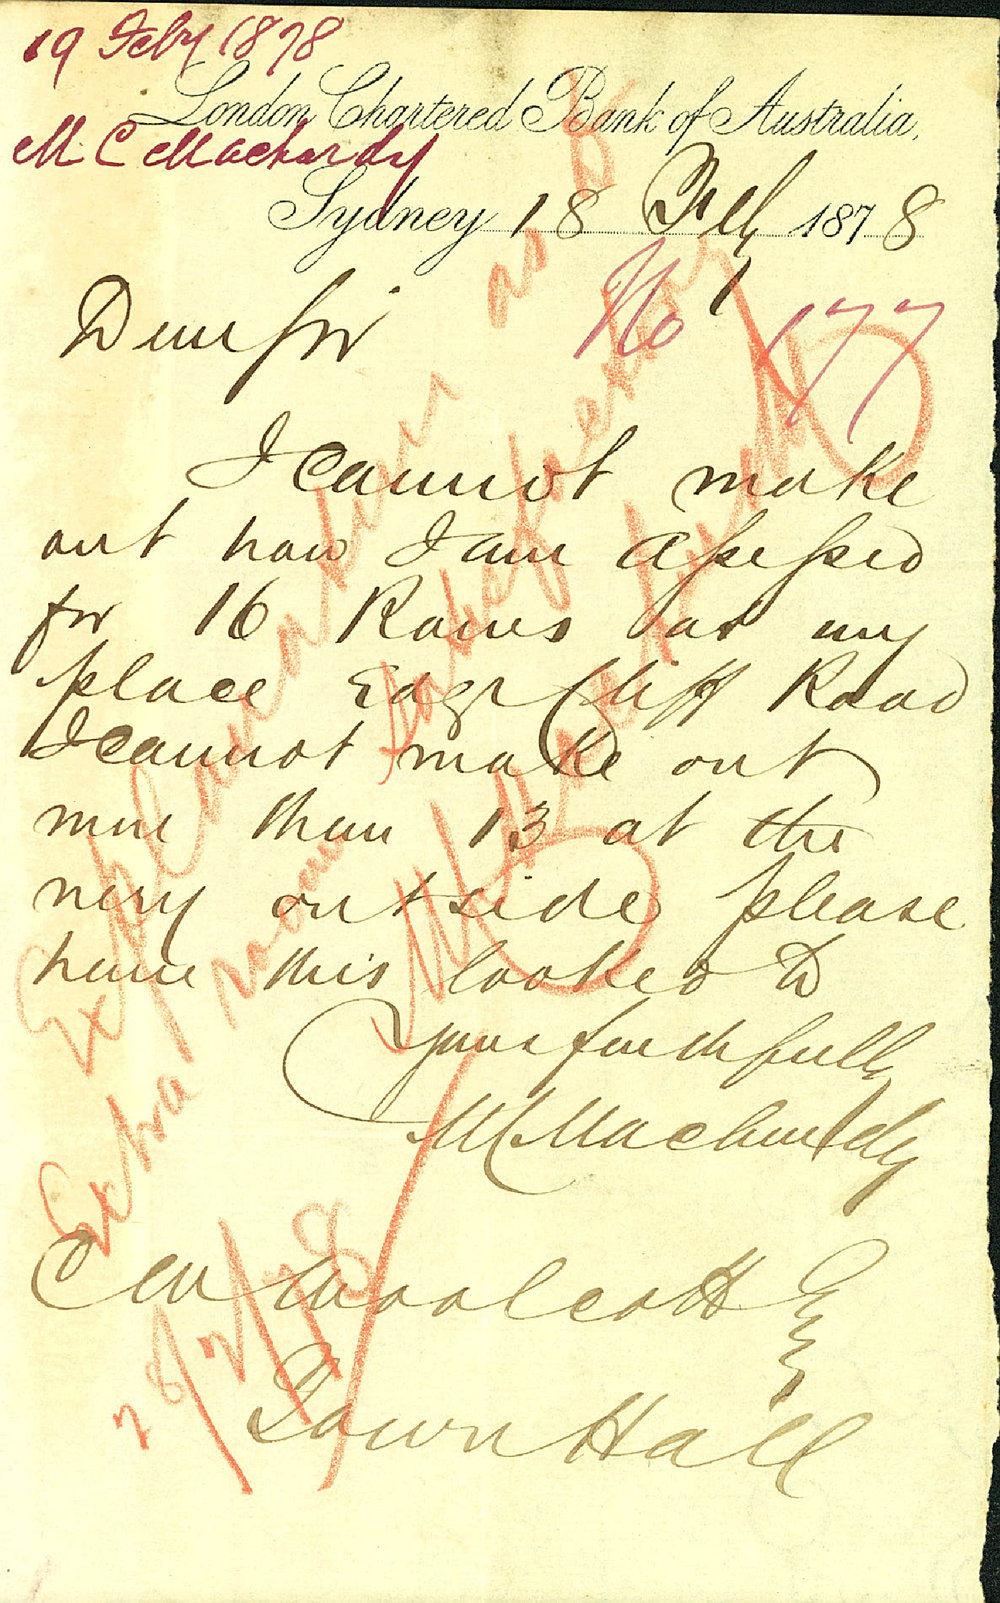 19 Feby 1878
London Chartered Bank of Australia,
M C Mackardy
Sydney 18 Feby 1878
No 177
Dear Sir
I cannot make
out how I am assessed
for 16 Rooms at my
place Edge Cliff Road
I cannot make out
more than 13 at the
very outside please
have this looked to
Yours faithfully
M C Machardy
C M Woolcott Esq
Town Hall
Explanation as to
Extra rooms
28/2/78